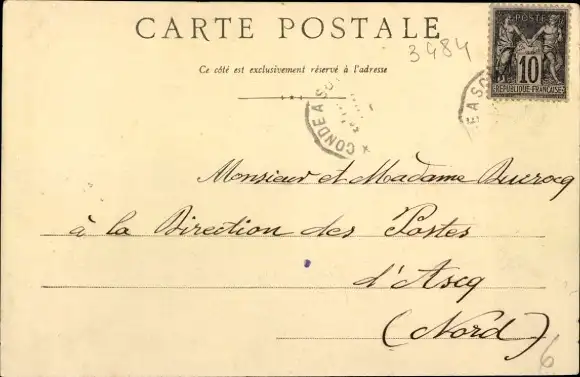 CARTE POSTALE
3484
Ce côté est exclusivement réservé à l'adresse
POSTE
10
RÉPUBLIQUE FRANÇAISE
CONDE A SC
E A SC
Monsieur et Madame Ducrocq
à la Direction des Postes
d'Ascq
(Nord)
6